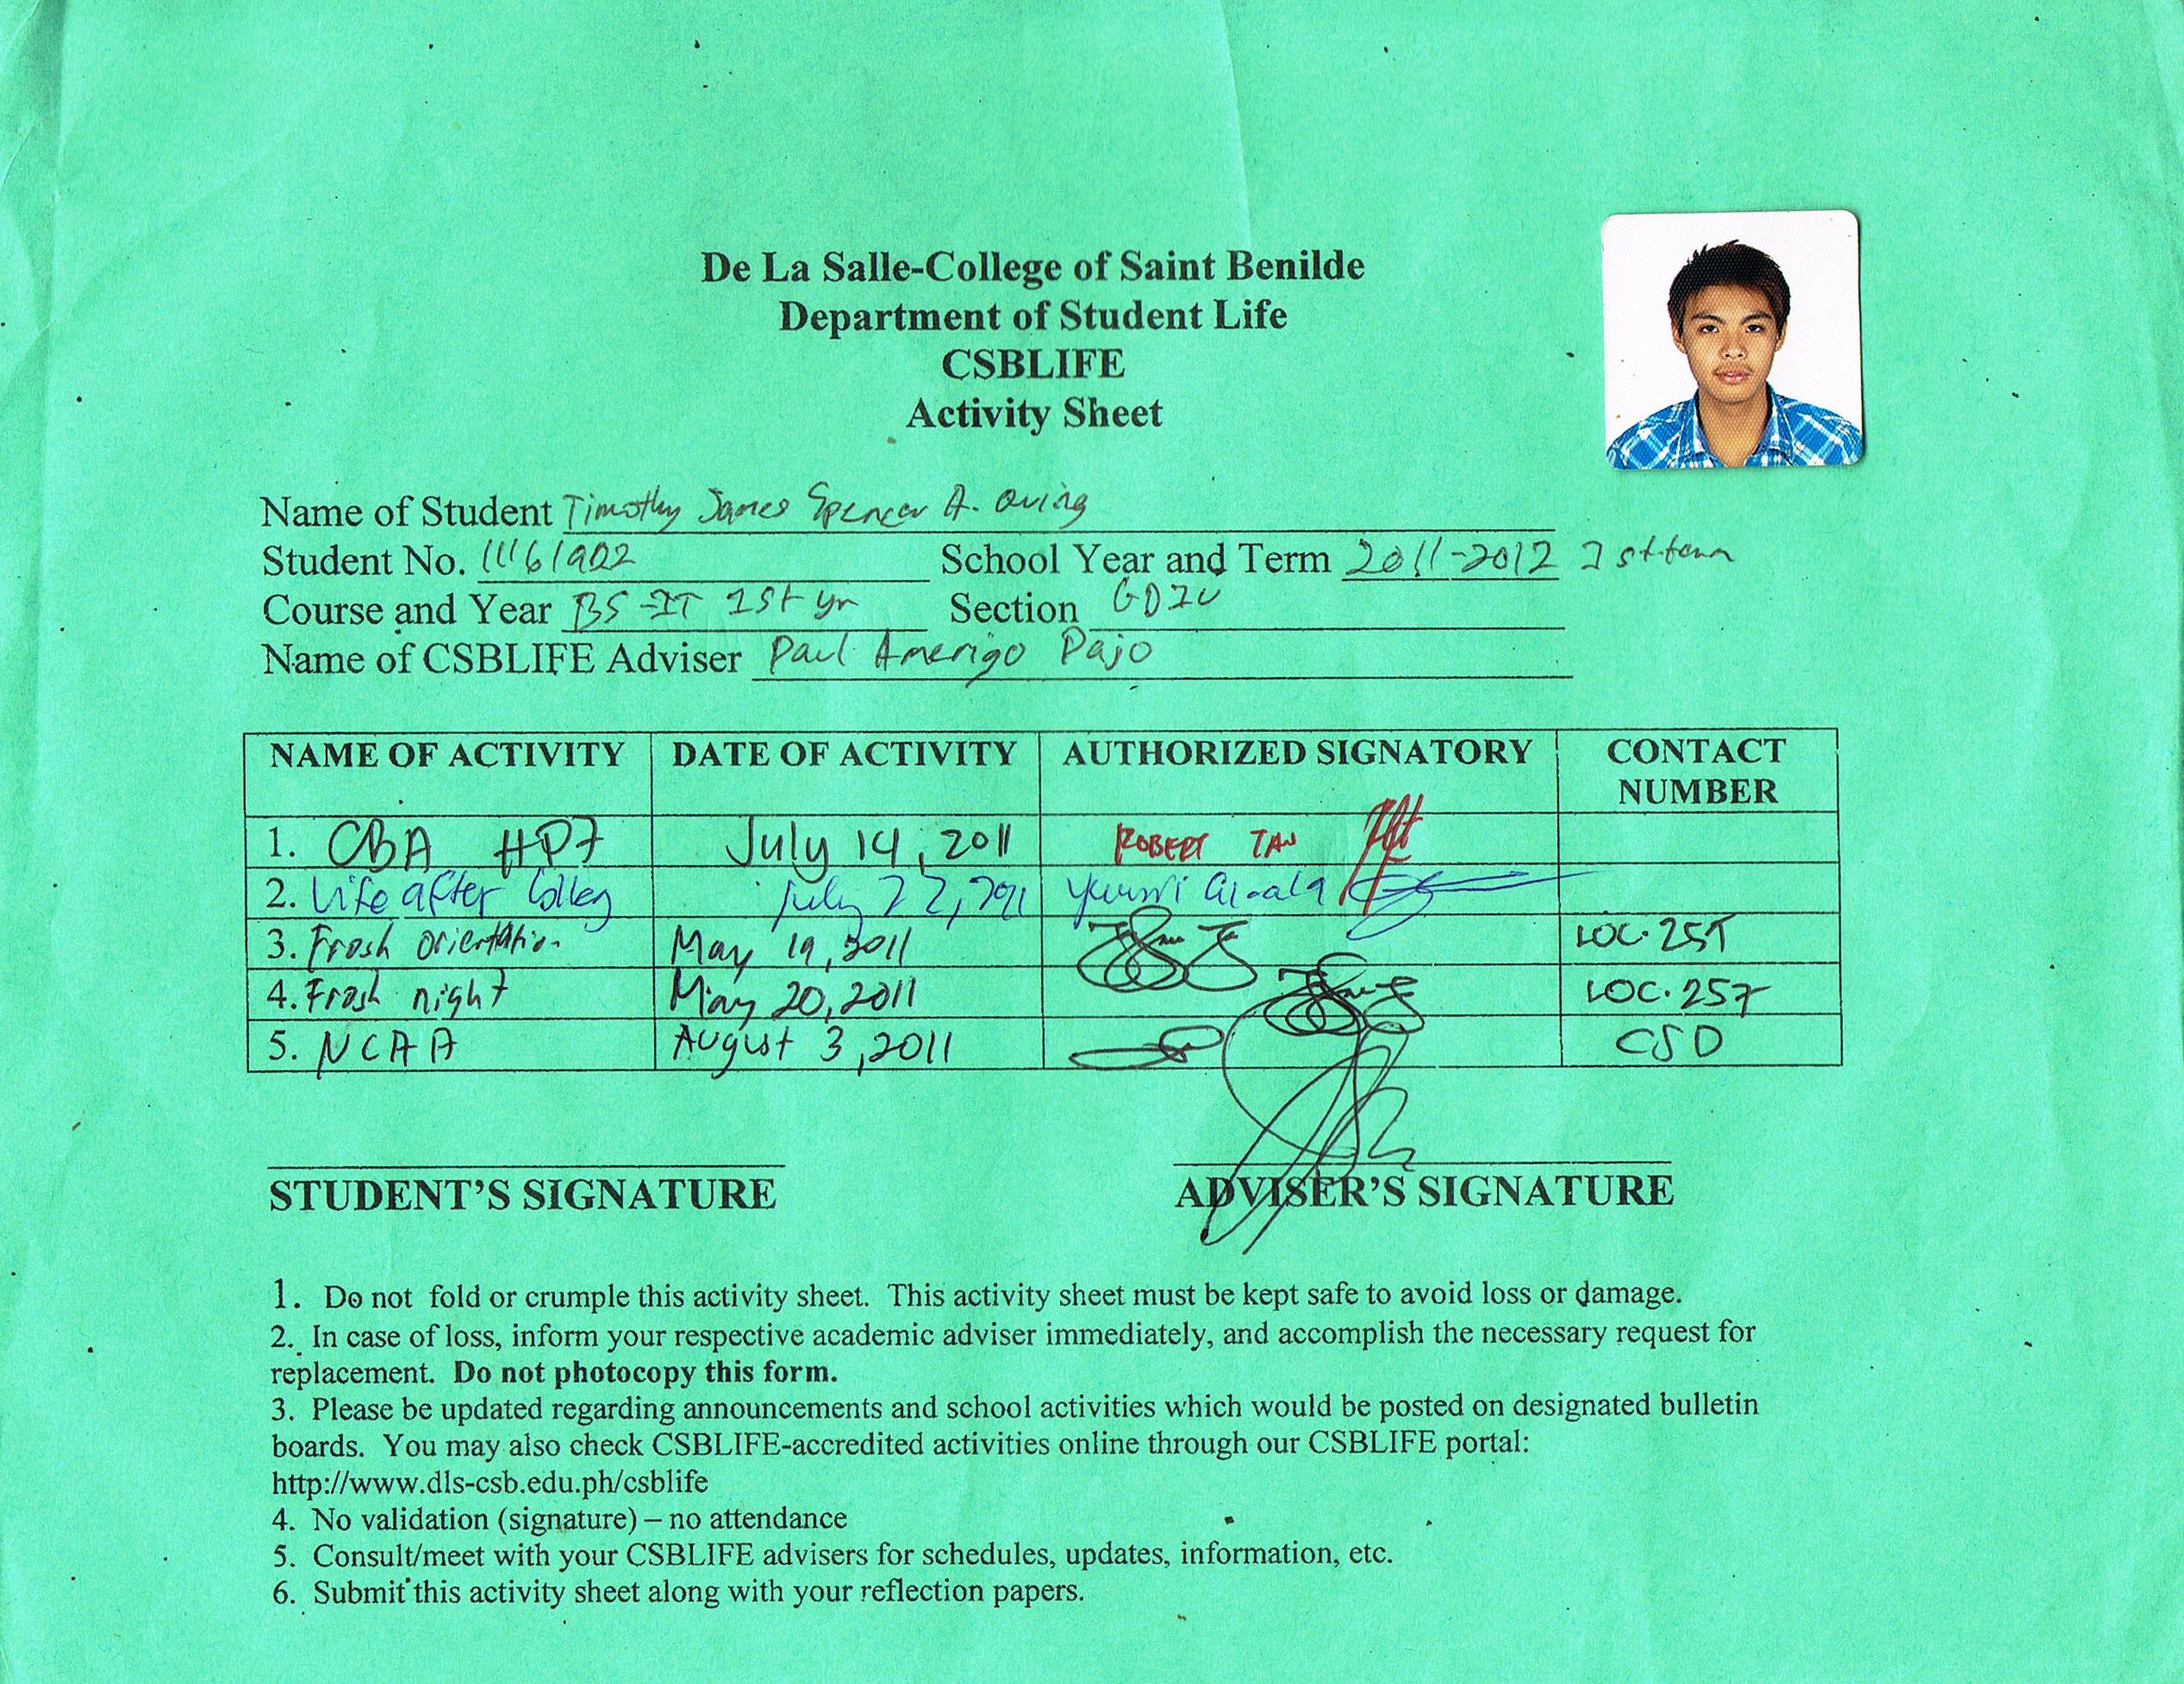 De La Salle-College of Saint Benilde
Department of Student Life
CSBLIFE
Activity Sheet
Name of Student Timothy James Spencer A.
Student No. 11161902 School Year and Term 2011-2012 1st term
Course and Year BS-IT 1st yr Section
Name of CSBLIFE Adviser Paul Amerigo Pajo
NAME OF ACTIVITY DATE OF ACTIVITY AUTHORIZED SIGNATORY CONTACT
NUMBER
1. CBA July 14, 2011 ROBERT TAN
2. Life after July 22,
3. Frosh orientation May 19, 2011 LOC. 257
4. Frosh night May 20, 2011 LOC. 257
5. NCAA August 3, 2011 CSO
STUDENT'S SIGNATURE ADVISER'S SIGNATURE
1. Do not fold or crumple this activity sheet. This activity sheet must be kept safe to avoid loss or damage.
2. In case of loss, inform your respective academic adviser immediately, and accomplish the necessary request for
replacement. Do not photocopy this form.
3. Please be updated regarding announcements and school activities which would be posted on designated bulletin
boards. You may also check CSBLIFE-accredited activities online through our CSBLIFE portal:
http://www.dls-csb.edu.ph/csblife
4. No validation (signature) – no attendance
5. Consult/meet with your CSBLIFE advisers for schedules, updates, information, etc.
6. Submit this activity sheet along with your reflection papers.